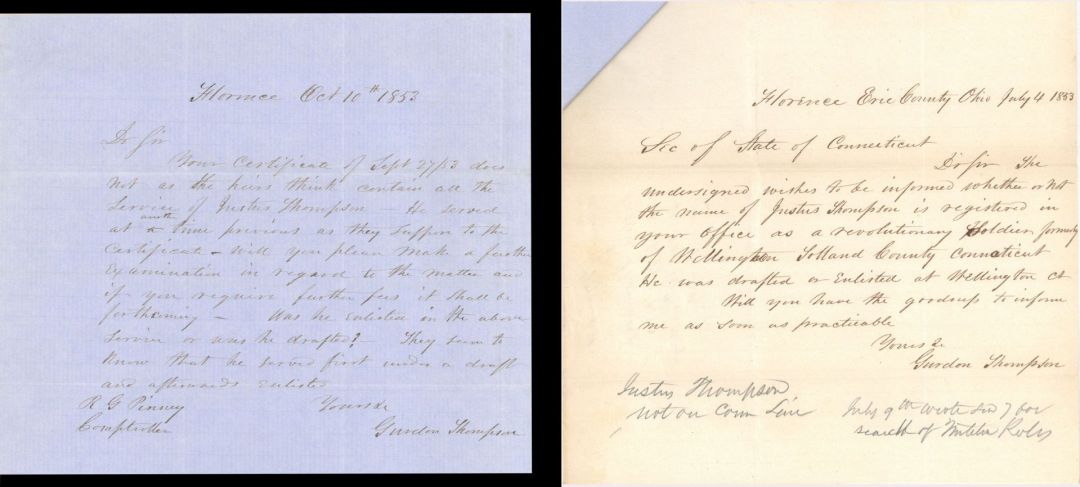 Florence Oct 10th 1853
Dr Sir
Your Certificate of Sept 27/53 does
not as the heirs think contain all the
Service of Justus Thompson - He served
at another time previous as they suppose to the
Certificate - Will you please make a further
Examination in regard to the matter and
if you require further fees it shall be
forthcoming - Was he Enlisted in the above
Service or was he drafted? They seem to
know that he served first under a draft
and afterwards enlisted
R G Pinney Yours &c
Comptroller Gurdon Thompson
Florence Erie County Ohio July 4 1853
Sec of State of Connecticut
Dr Sir The
undersigned wishes to be informed whether or not
the name of Justus Thompson is registered in
your office as a revolutionary Soldier formerly
of Wellington Tolland County Connecticut
He was drafted or Enlisted at Wellington Ct
Will you have the goodness to inform
me as soon as practicable
Yours &c
Gurdon Thompson
Justus Thompson
not on Conn Line
July 9th wrote for
search of Militia Rolls